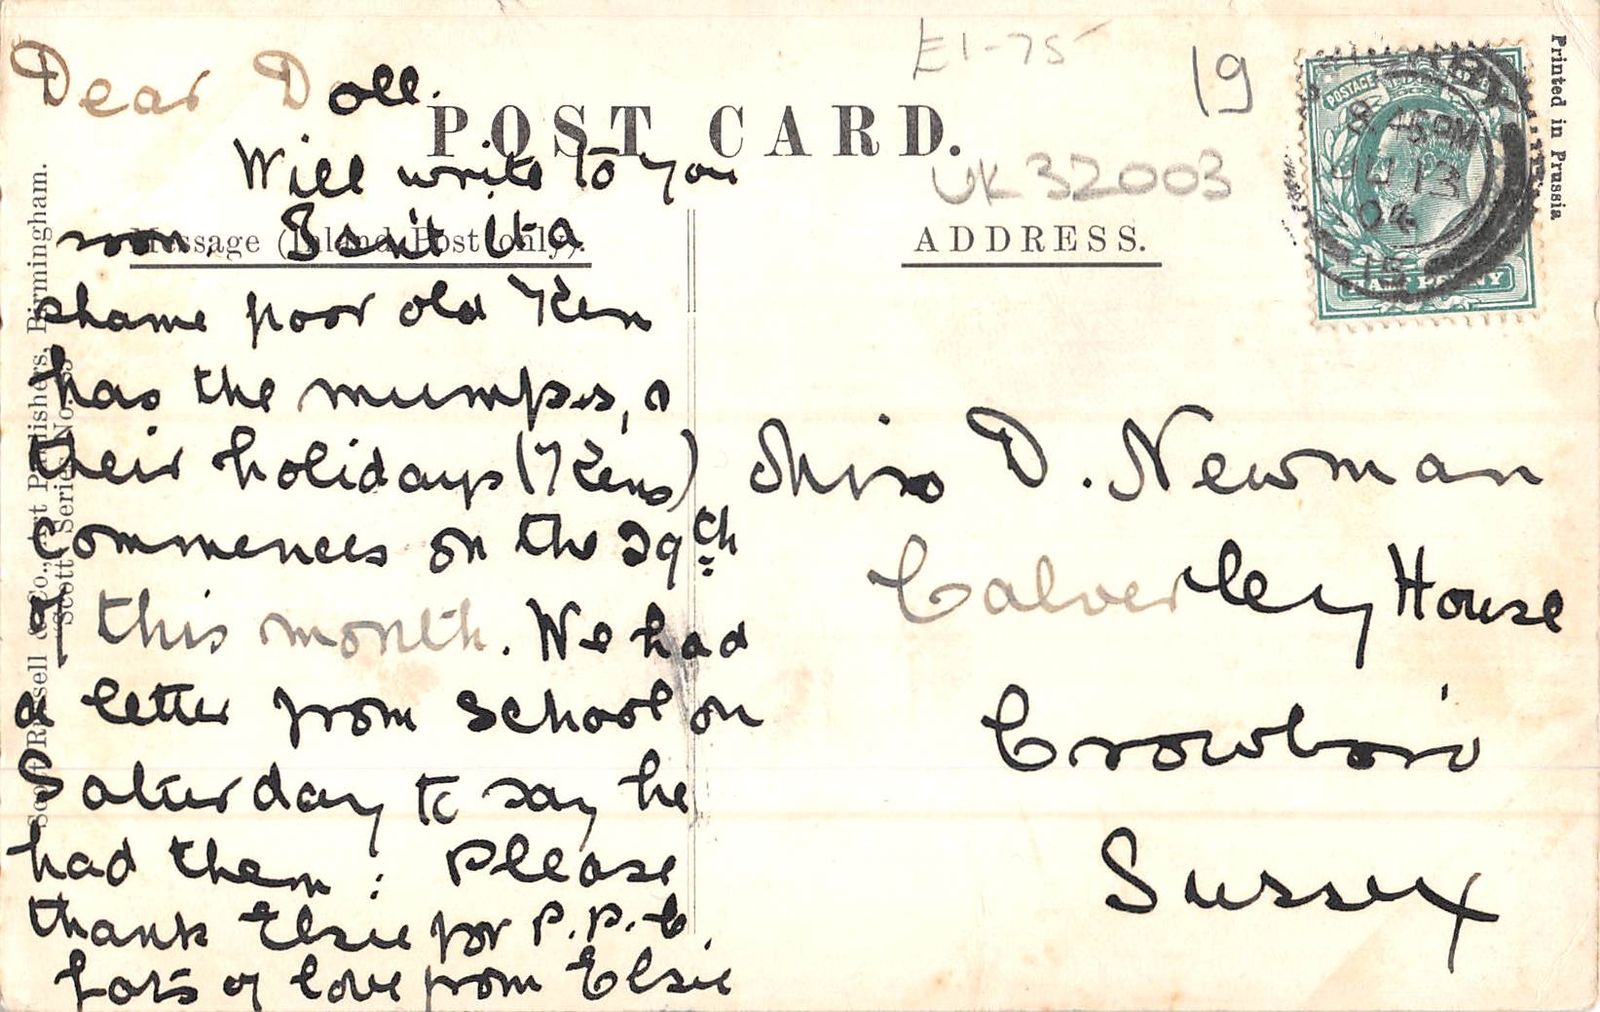 Dear Doll.
Will write to you
soon. Isn't it a
shame poor old Ken
has the mumps, &
their holidays (Kens)
commences on the 29th
of this month. We had
a letter from school on
Saturday to say he
had them : Please
thank Elsie for P.P.C.
Lots of love from Elsie
POST CARD.
Message (Inland Post only).
ADDRESS.
E1-75
19
UK 32003
Miss D. Newman
Calverley House
Crowboro'
Sussex
POSTAGE
8.45PM
JU 13
04
15
HALFPENNY
Printed in Prussia
Scott Russell & Co., Art Publishers, Birmingham.
"Scott" Series No.